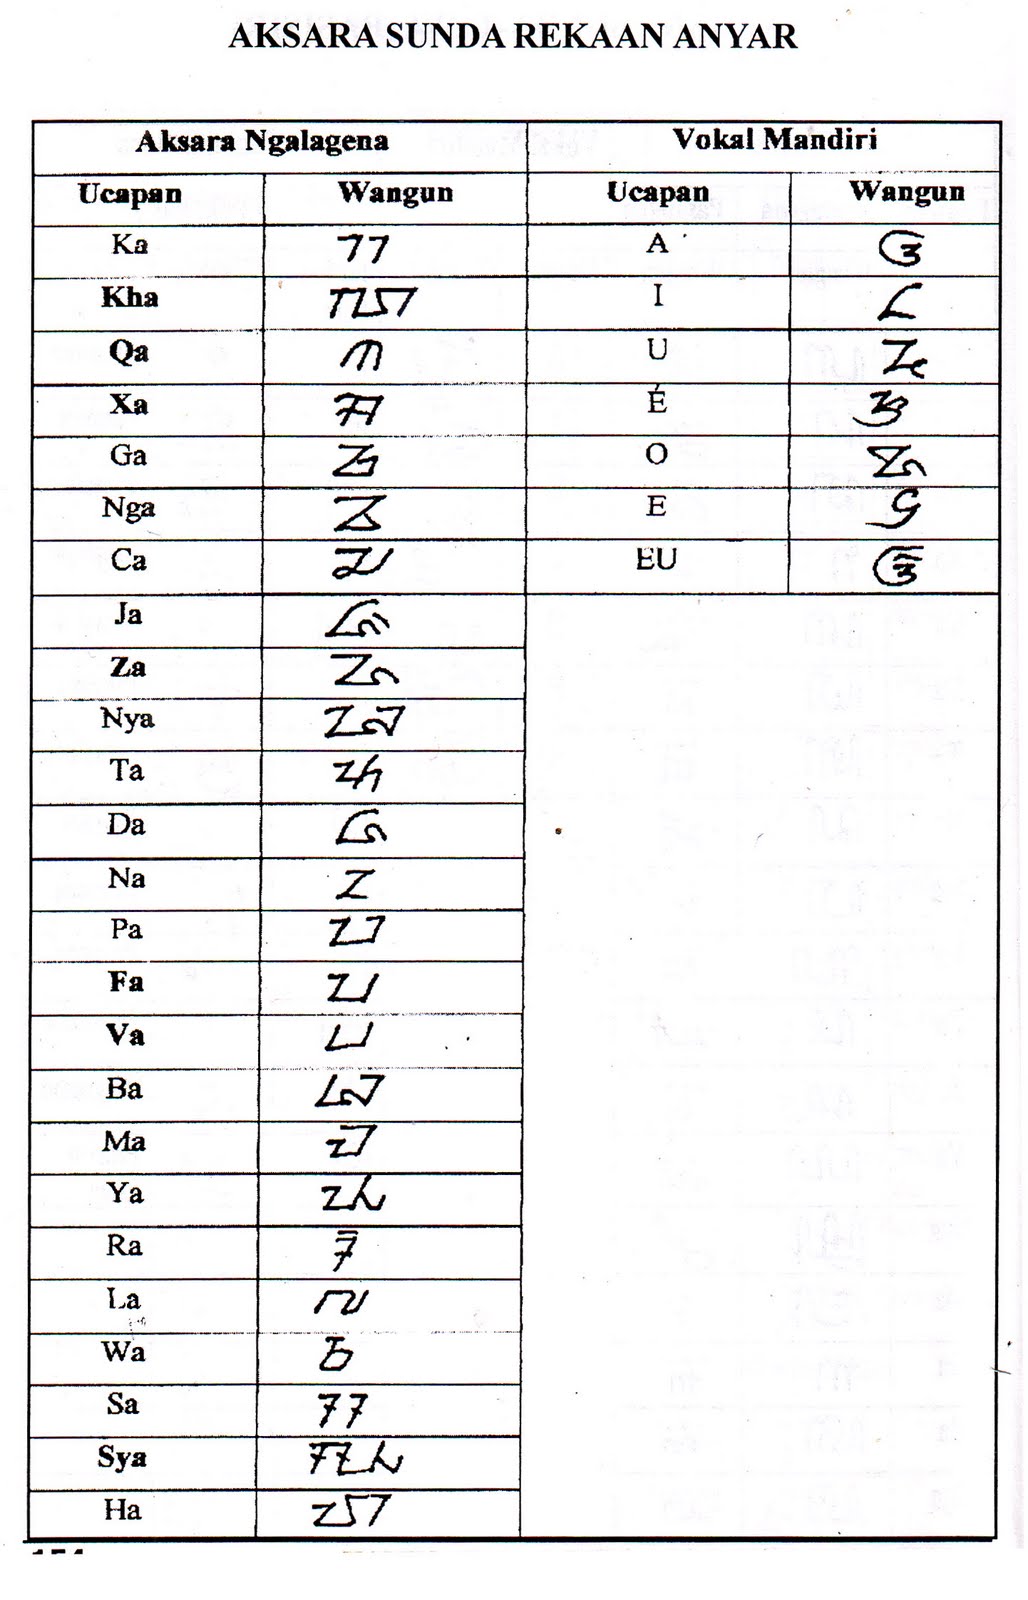 AKSARA SUNDA REKAAN ANYAR
Aksara Ngalagena Vokal Mandiri
Ucapan Wangun Ucapan Wangun
Ka ᮊ A ᮃ
Kha ᮮ I ᮄ
Qa ᮋ U ᮅ
Xa ᮟ É ᮆ
Ga ᮌ O ᮇ
Nga ᮍ E ᮈ
Ca ᮎ EU ᮉ
Ja ᮏ
Za ᮐ
Nya ᮑ
Ta ᮒ
Da ᮓ
Na ᮔ
Pa ᮕ
Fa ᮖ
Va ᮗ
Ba ᮘ
Ma ᮙ
Ya ᮚ
Ra ᮛ
La ᮜ
Wa ᮝ
Sa ᮞ
Sya ᮯ
Ha ᮠ